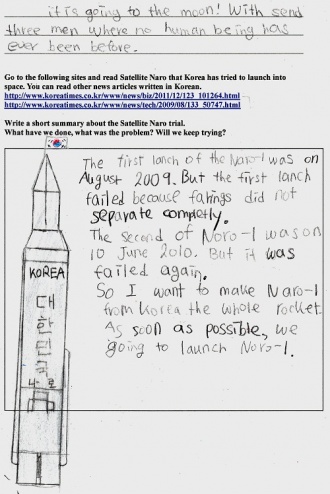 it is going to the moon! With send
three men where no human being has
ever been before.
Go to the following sites and read Satellite Naro that Korea has tried to launch into
space. You can read other news articles written in Korean.
http://www.koreatimes.co.kr/www/news/biz/2011/12/123_101264.html
http://www.koreatimes.co.kr/www/news/tech/2009/08/133_50747.html
Write a short summary about the Satellite Naro trial.
What have we done, what was the problem? Will we keep trying?
The first lanch of the Naro-1 was on
August 2009. But the first lanch
failed because farings did not
separate completly.
The second of Noro-1 was on
10 June 2010. But it was
failed again.
So I want to make Naro-1
from Korea the whole rocket.
As soon as possible, we
going to launch Noro-1.
KOREA
대
한
민
국
나로